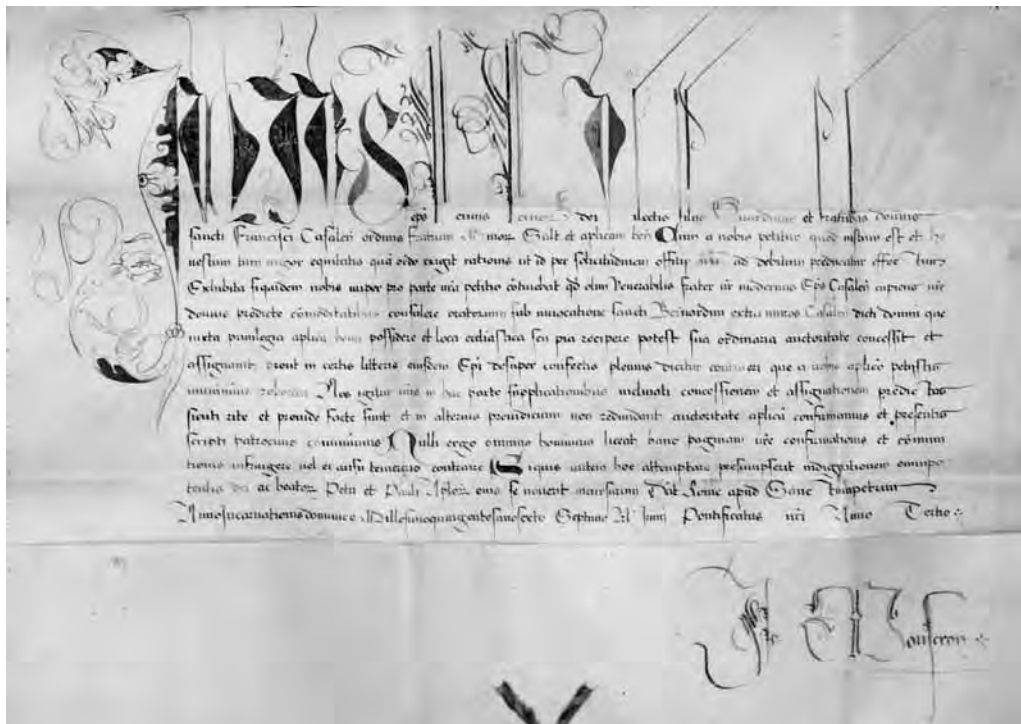 IULIUS
ep̃s servus servor dei ilectis filiis Guardiano et fratribus domus
sancti Francisci Casaleñ ordinis fratrum Minor Salt et aplicam beñ Cum a nobis petitur quod iustum est et ho
nestum tam vigor equitatis quã ordo exigit rationis ut id per solicitudinem officii nr̃i ad debitum perducatur effectum
Exhibita siquidem nobis nuper pro parte vr̃a petitio cõtinebat qd̃ olim Venerabilis frater nr̃ modernus Ep̃s Casaleñ cupiens vr̃e
domus predicte cõmoditatibus consulere oratorium sub invocatione sancti Bernardini extra muros Casaleñ dicti domui que
iuxta privilegia aplica bona possidere et loca ecclesiastica seu pia recipere potest sua ordinaria auctoritate concessit et
assignavit prout in certis litteris eiusdem Ep̃i desuper confectis plenius dicitur contineri que a nobis aplico petiistis
munimine roborari Nos igitur vr̃is in hac parte supplicationibus inclinati concessionem et assignationem predictas
sicuti rite et provide facte sunt et in alterius preiudicium non redundant auctoritate aplica confirmamus et presentis
scripti patrocinio cõmunimus Nulli ergo omnino hominum liceat hanc paginam nr̃e confirmationis et cõmuni
tionis infringere vel ei ausu temerario contraire Siquis autem hoc attemptare presumpserit indignationem omnipo
tentis dei ac beator Petri et Pauli Aplor eius se noverit incursurum Dat̃ Rome apud Sanc tumpetrum
Anno Incarnationis dominice Millesimoquingentesimosexto Septimo Kl̃ Junii Pontificatus nr̃i Anno Tertio